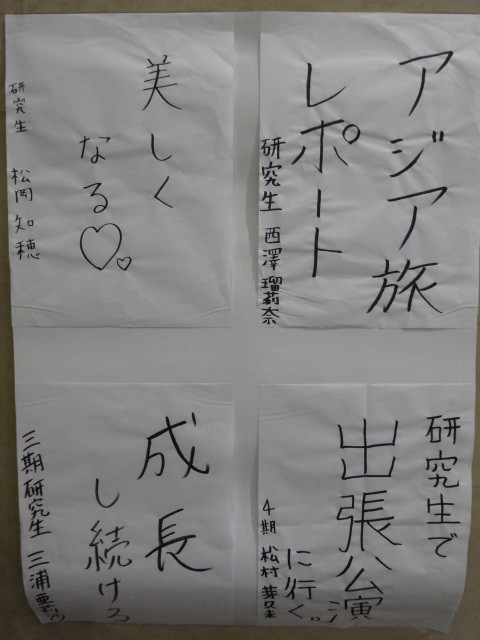 アジア旅
レポート
研究生 西澤 瑠莉奈
美しく
なる♡♡
研究生 松岡 知穂
研究生で
出張公演
に行く。
4期 松村 芽久未
成長
し続ける
三期研究生 三浦